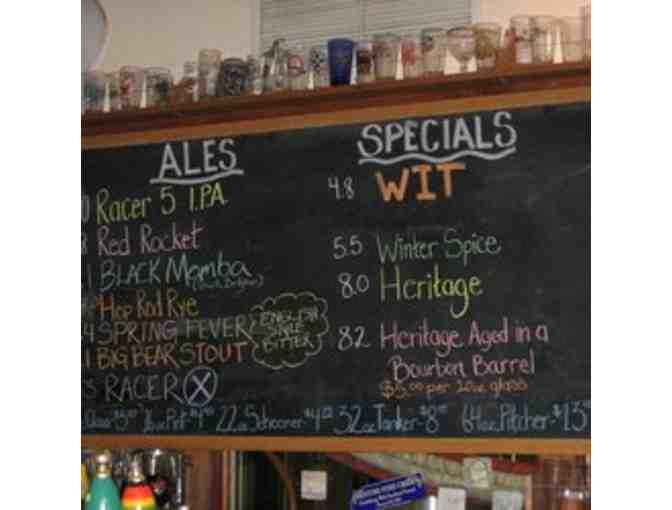 ALES
Racer 5 I.PA
Red Rocket
BLACK Mamba
Hop Rod Rye
SPRING FEVER
ENGLISH
STYLE
BITTER
BIG BEAR STOUT
RACER X
SPECIALS
4.8 WIT
5.5 Winter Spice
8.0 Heritage
8.2 Heritage Aged in a
Bourbon Barrel
$5.00 per 20oz glass
Pint-$4 22oz Schooner-$4 32oz Tanker-$8 64oz Pitcher-$13